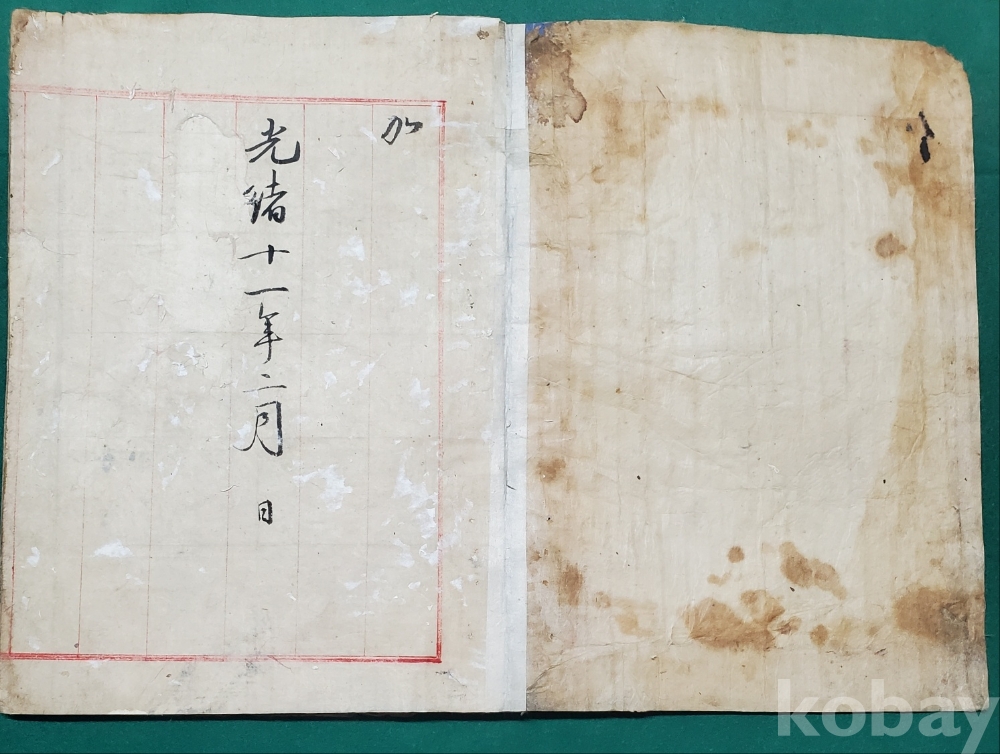 光緖十一年二月 日
kobay